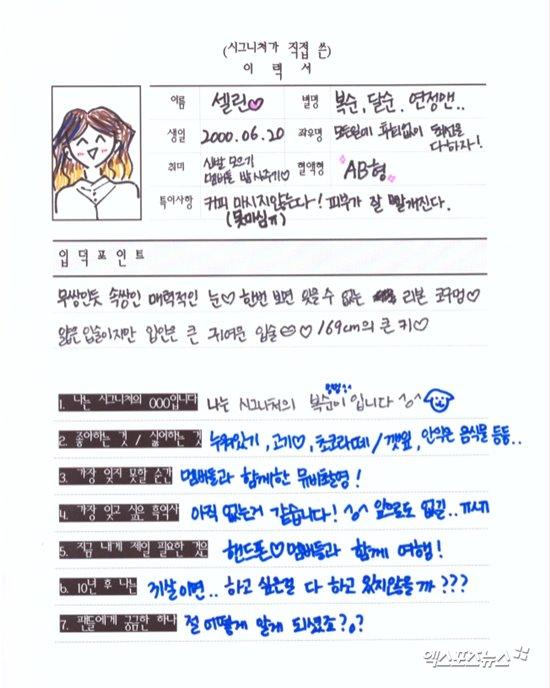 (시그니처가 직접 쓴)
이력서
이름 셀린♡ 별명 복순, 달순, 연정앤..
생일 2000.06.20 좌우명 모든일에 후회없이 최선을 다하자!
취미 신발 모으기 멤버들 밥 사주기♡ 혈액형 AB형
특이사항 커피 마시지않는다! 피부가 잘 빨개진다.
(못마심ㅠ)
입덕포인트
무쌍인듯 속쌍인 매력적인 눈♡ 한번 보면 잊을 수 없는 리본 콧구멍♡
얇은 입술이지만 입안은 큰 귀여운 입술 ♡ 169cm의 큰 키♡
1. 나는 시그니처의 OOO입니다 나는 시그니처의 복순이 입니다
2. 좋아하는 것 / 싫어하는 것 누워있기, 고기♡, 초코라떼 / 깻잎, 안익은 음식물 등등..
3. 가장 잊지 못할 순간 멤버들과 함께한 뮤비촬영!
4. 가장 잊고 싶은 흑역사 아직 없는거 같습니다! 앞으로도 없길..
5. 지금 내게 제일 필요한 것은 핸드폰♡ 멤버들과 함께 여행!
6. 10년 후 나는 31살이면.. 하고 싶은걸 다 하고 있지않을까???
7. 팬들에게 궁금한 하나 절 어떻게 알게 되셨죠?
엑스포츠뉴스